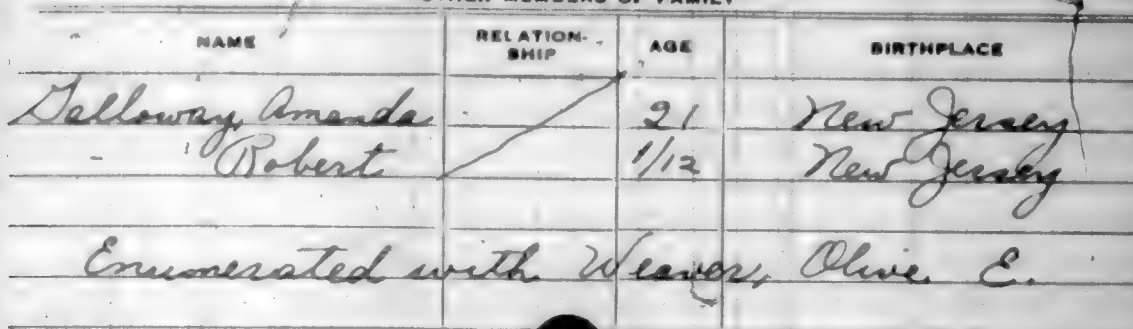 OTHER MEMBERS OF FAMILY
NAME RELATION-SHIP AGE BIRTHPLACE
Galloway, Amanda 21 New Jersey
" Robert 1/12 New Jersey
Enumerated with Weaver, Olive E.